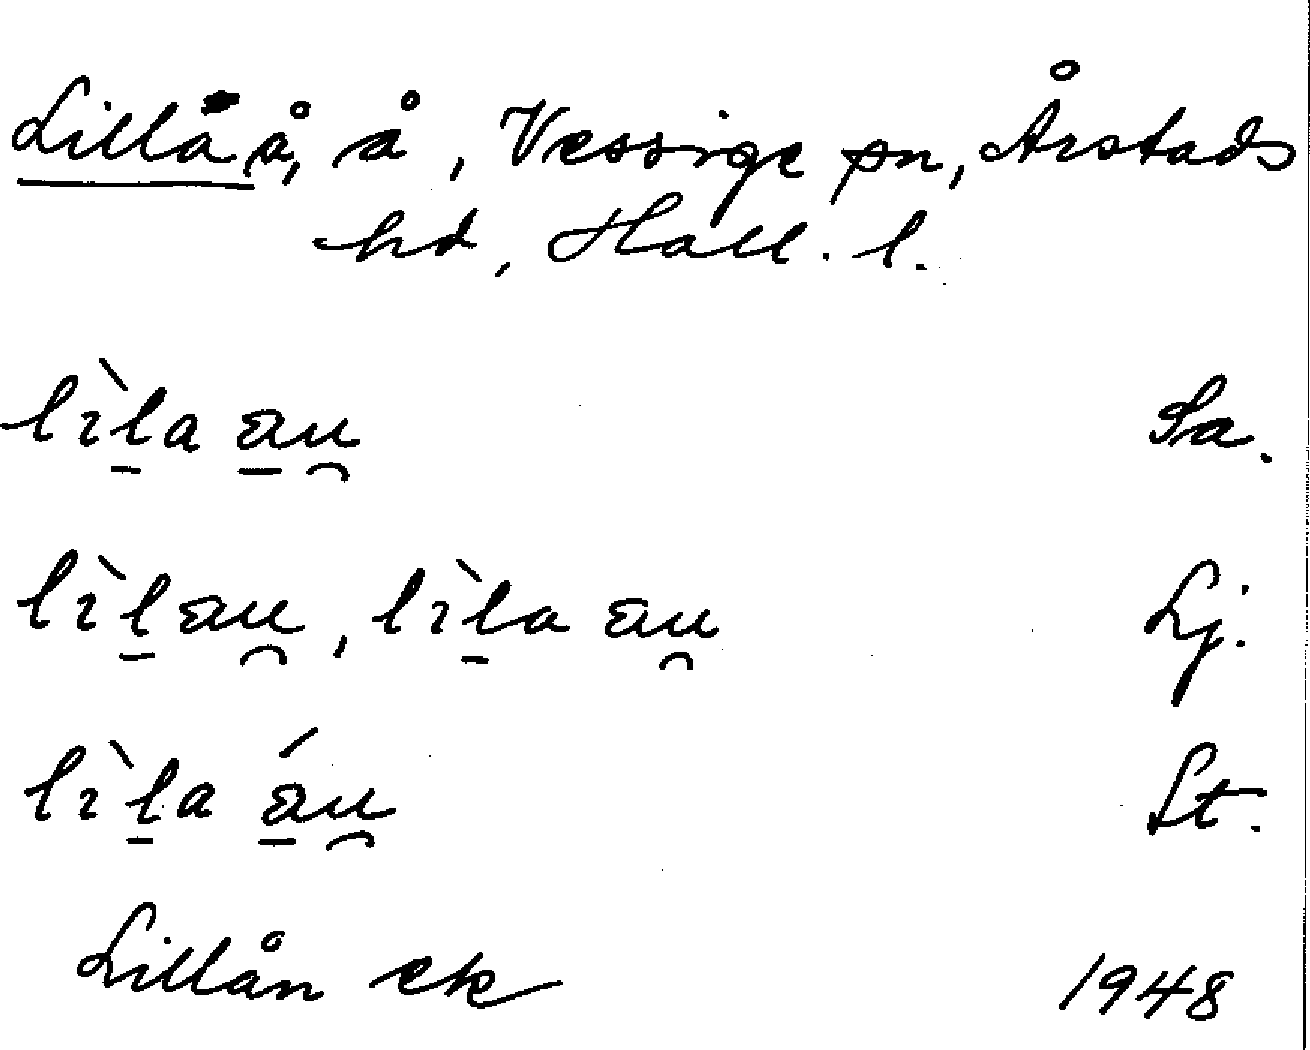 Lillå å, å, Vessige sn, Årstads
hd, Hall. l.
lìl̠a a̠u̯ Sa.
lìl̠au̯, lìl̠a au̯ Lj.
lìl̠a á̠u̯ St.
Lillån ek 1948